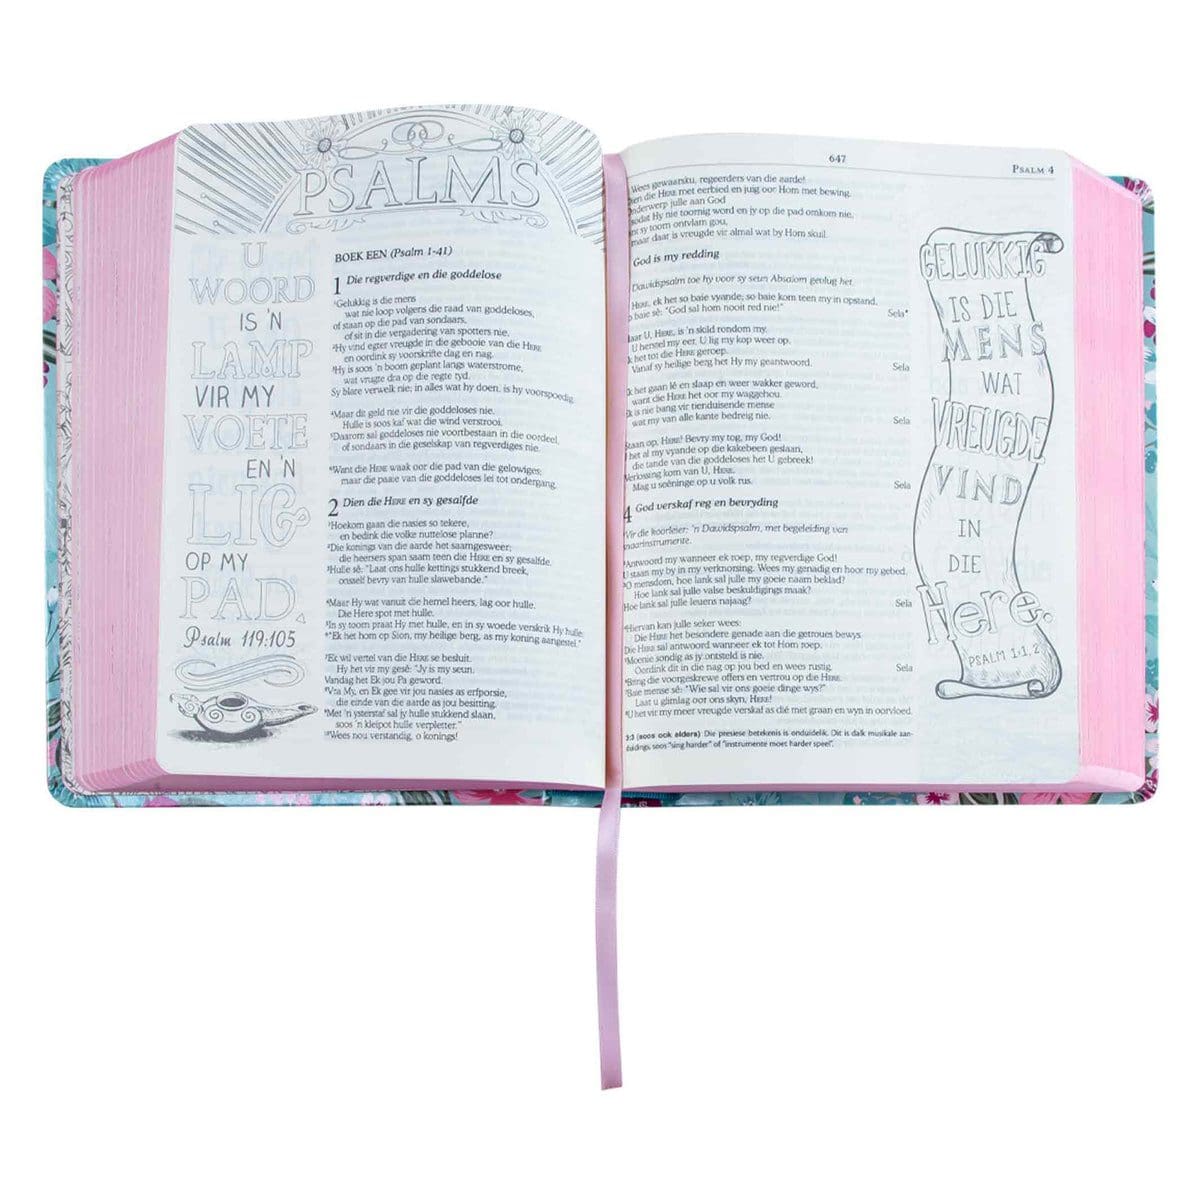 PSALMS
U
WOORD
IS 'N
LAMP
VIR MY
VOETE
EN 'N
LIG
OP MY
PAD.
Psalm 119:105
BOEK EEN (Psalm 1-41)
1 Die regverdige en die goddelose
¹Gelukkig is die mens
wat nie loop volgens die raad van goddeloses,
of staan op die pad van sondaars,
of sit in die vergadering van spotters nie.
²Hy vind egter vreugde in die gebooie van die HERE
en oordink sy voorskrifte dag en nag.
³Hy is soos 'n boom geplant langs waterstrome,
wat vrugte dra op die regte tyd.
Sy blare verwelk nie; in alles wat hy doen, is hy voorspoedig.
⁴Maar dit geld nie vir die goddeloses nie.
Hulle is soos kaf wat die wind verstrooi.
⁵Daarom sal goddeloses nie voortbestaan in die oordeel,
of sondaars in die geselskap van regverdiges nie.
⁶Want die HERE waak oor die pad van die gelowiges;
maar die paaie van die goddeloses lei tot ondergang.
2 Dien die HERE en sy gesalfde
¹Hoekom gaan die nasies so tekere,
en bedink die volke nuttelose planne?
²Die konings van die aarde het saamgesweer;
die heersers span saam teen die HERE en sy gesalfde.
³Hulle sê: "Laat ons hulle kettings stukkend breek,
onsself bevry van hulle slawebande."
⁴Maar Hy wat vanuit die hemel heers, lag oor hulle.
Die Here spot met hulle.
⁵In sy toorn praat Hy met hulle, en in sy woede verskrik Hy hulle:
⁶"Ek het hom op Sion, my heilige berg, as my koning aangestel."
⁷Ek wil vertel van die HERE se besluit.
Hy het vir my gesê: "Jy is my seun.
Vandag het Ek jou Pa geword.
⁸Vra My, en Ek gee vir jou nasies as erfporsie,
die einde van die aarde as jou besitting.
⁹Met 'n ysterstaf sal jy hulle stukkend slaan,
soos 'n kleipot hulle verpletter."
¹⁰Wees nou verstandig, o konings!
647
PSALM 4
Wees gewaarsku, regeerders van die aarde!
Dien die HERE met eerbied en juig oor Hom met bewing.
Onderwerp julle aan God
sodat Hy nie toornig word en jy op die pad omkom nie,
sy toorn ontvlam gou,
maar daar is vreugde vir almal wat by Hom skuil.
God is my redding
Dawidspsalm toe hy voor sy seun Absalom gevlug het.
HERE, ek het so baie vyande; so baie kom teen my in opstand,
baie sê: "God sal hom nooit red nie!" Sela*
Maar U, HERE, is 'n skild rondom my.
U herstel my eer, U lig my kop weer op.
Ek het tot die HERE geroep.
Vanaf sy heilige berg het Hy my geantwoord. Sela
Ek het gaan lê en slaap en weer wakker geword,
want die HERE het oor my waggehou.
Ek is nie bang vir tienduisende mense
wat my van alle kante bedreig nie. Sela
Staan op, HERE! Bevry my tog, my God!
U het al my vyande op die kakebeen geslaan,
die tande van die goddeloses het U gebreek!
Verlossing kom van U, HERE.
Mag u seëninge op u volk rus. Sela
4 God verskaf reg en bevryding
¹Vir die koorleier: 'n Dawidspsalm, met begeleiding van
snaarinstrumente.
²Antwoord my wanneer ek roep, my regverdige God!
U staan my by in my verknorsing. Wees my genadig en hoor my gebed.
³O mensdom, hoe lank sal julle my goeie naam beklad?
Hoe lank sal julle valse beskuldigings maak?
Hoe lank sal julle leuens najaag? Sela
⁴Hiervan kan julle seker wees:
Die HERE het besondere genade aan die getroues bewys.
Die HERE sal antwoord wanneer ek tot Hom roep.
⁵Moenie sondig as jy ontsteld is nie.
Oordink dit in die nag op jou bed en wees rustig. Sela
⁶Bring die voorgeskrewe offers en vertrou op die HERE.
⁷Baie mense sê: "Wie sal vir ons goeie dinge wys?"
Laat u glimlag oor ons skyn, HERE!
⁸U het vir my meer vreugde verskaf as dié met graan en wyn in oorvloed.
3:3 (soos ook elders) Die presiese betekenis is onduidelik. Dit is dalk musikale aan-
duidings, soos "sing harder" of "instrumente moet harder speel".
GELUKKIG
IS DIE
MENS
WAT
VREUGDE
VIND
IN
DIE
Here.
PSALM 1:1,2